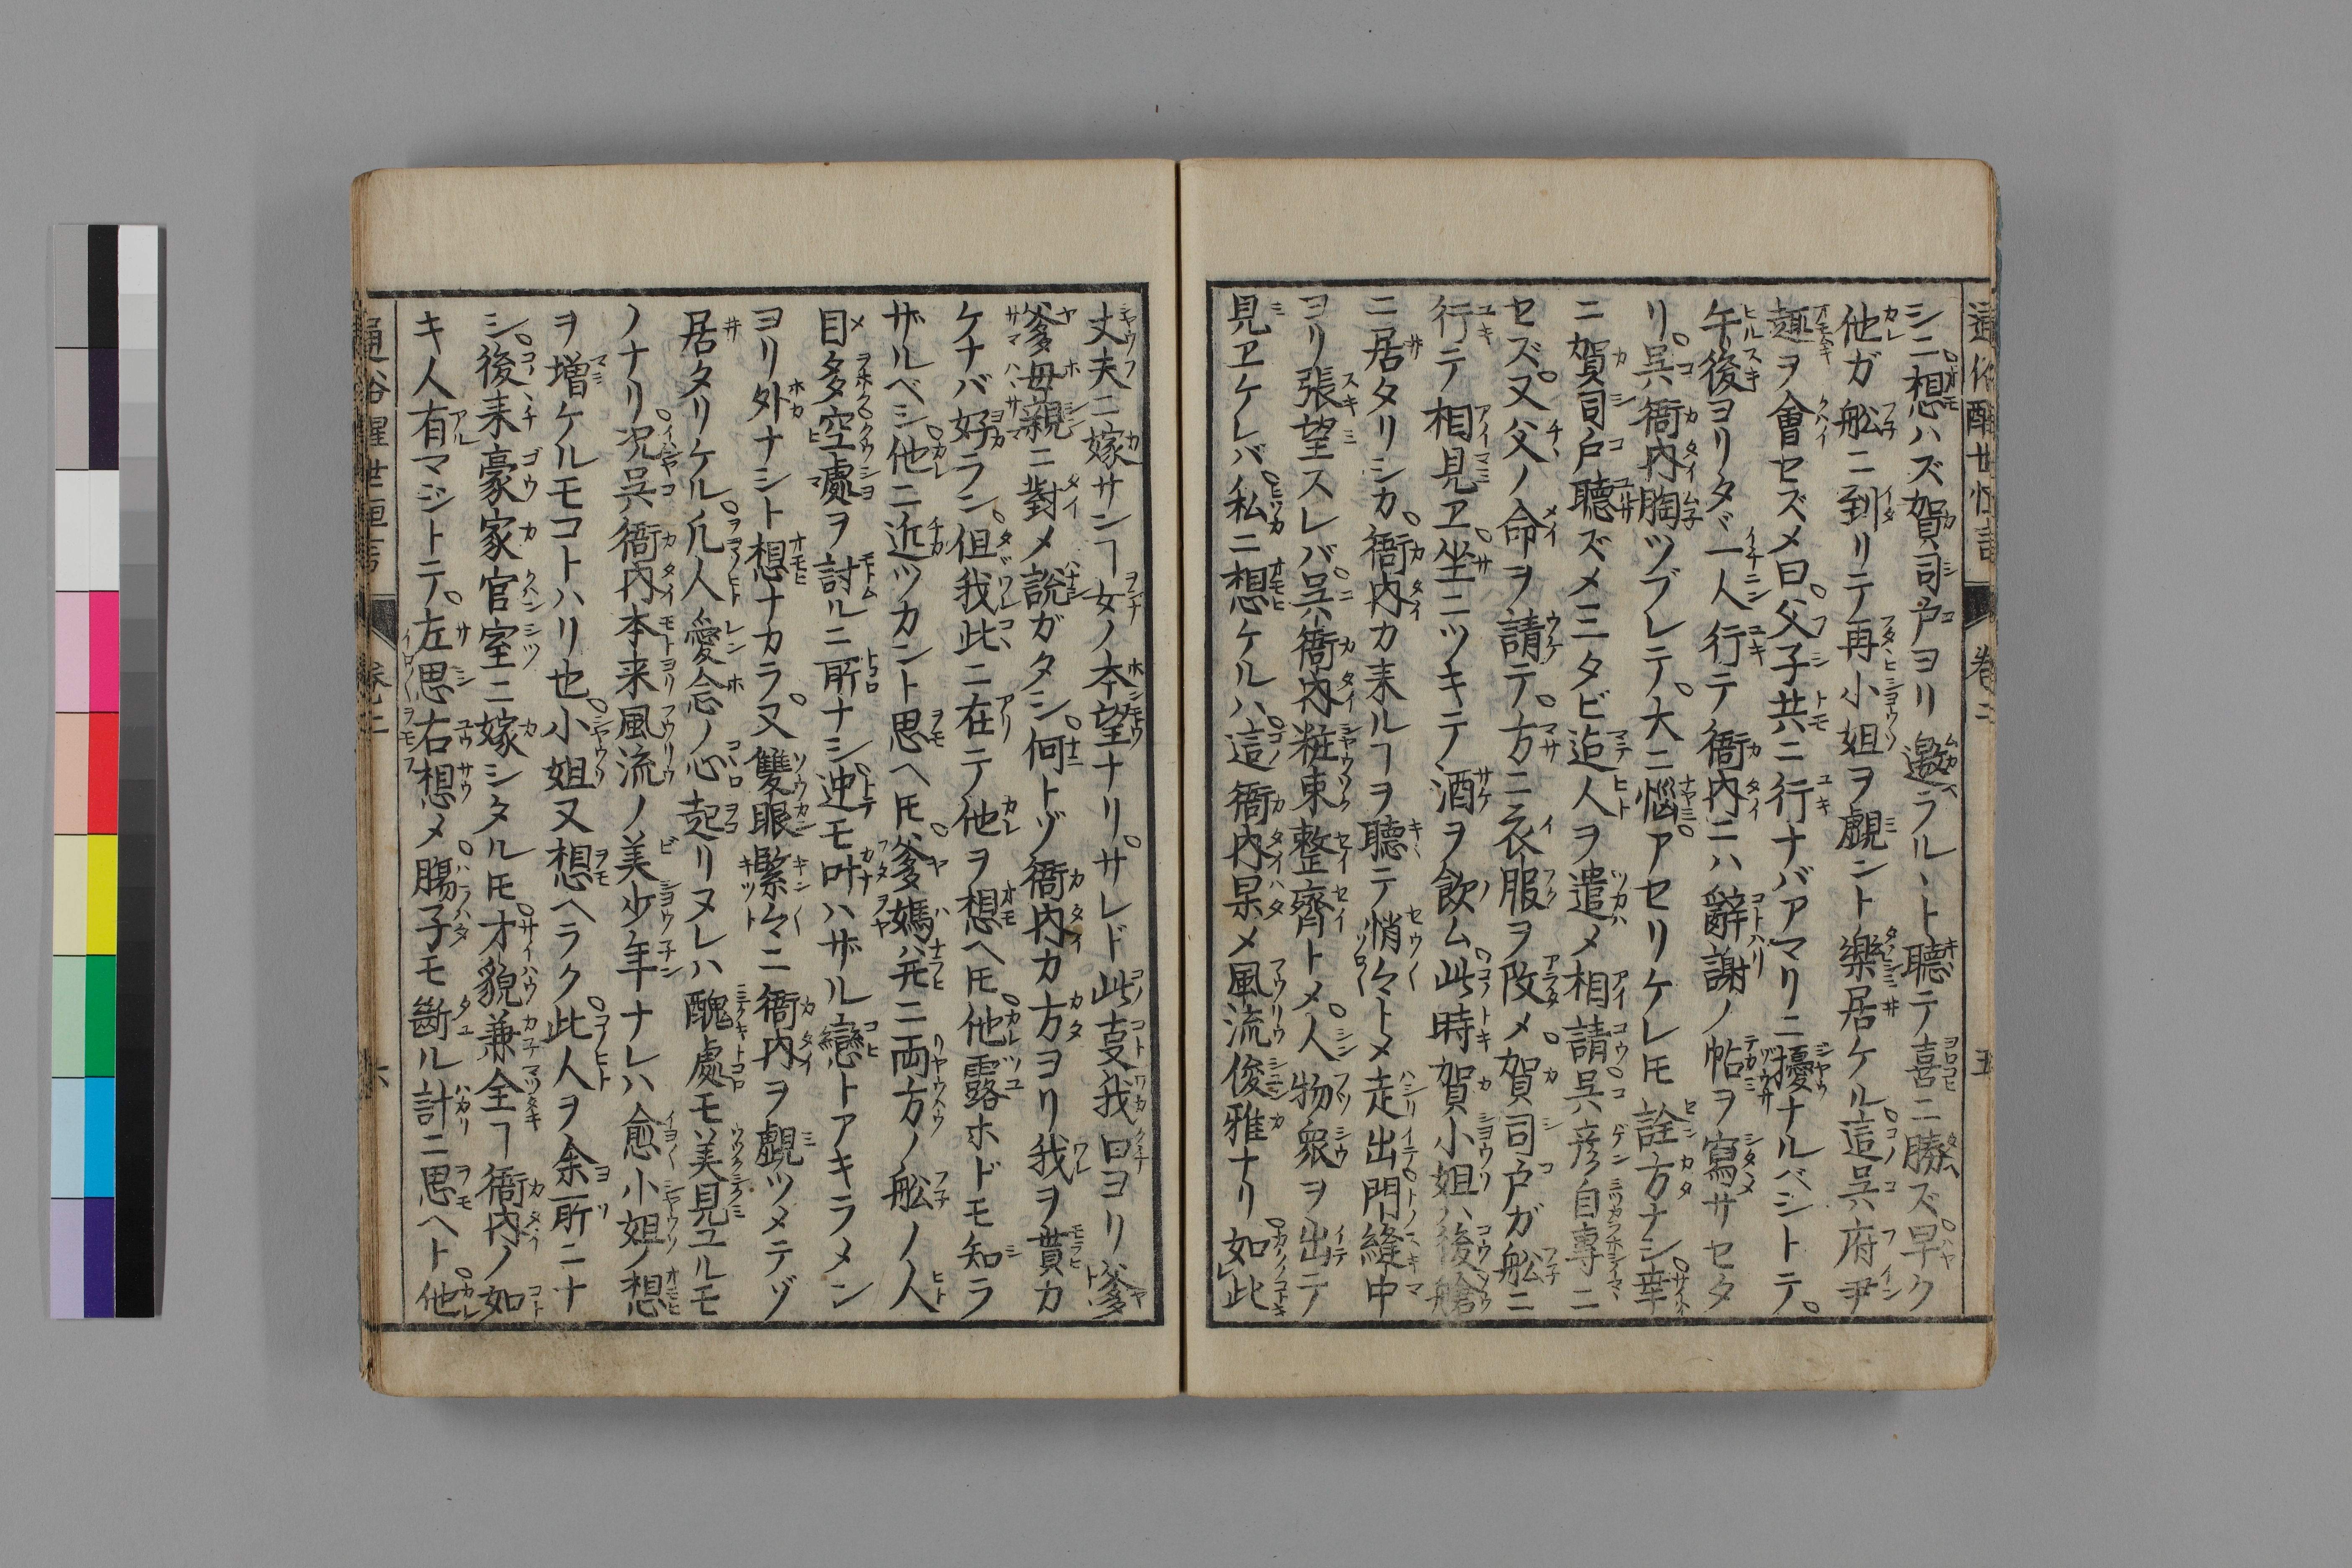 通俗醒世恒言 巻二 五
シニ想ハズ賀司戸ヨリ邀ラルヽト聴テ喜ニ勝ズ早ク
他ガ舩ニ到リテ再小姐ヲ覷ント樂居ケル這呉府尹
趣ヲ會セズメ曰父子共ニ行ナバアマリニ擾ナルベシトテ
午後ヨリタヾ一人行テ衙内ニハ辭謝ノ帖ヲ寫サセタ
リ呉衙内胸ツブレテ大ニ惱アセリケレ𪜈詮方ナシ幸
ニ賀司戸聴ズメ三タビ迨人ヲ遣メ相請呉彦自專ニ
セズ又父ノ命ヲ請テ方ニ衣服ヲ改メ賀司戸ガ舩ニ
行テ相見ヱ坐ニツキテ酒ヲ飲ム此時賀小姐ハ後艙
ニ居タリシカ衙内カ来ルヿヲ聴テ悄々トメ走出門縫中
ヨリ張望スレバ呉衙内粧束整齊トメ人物衆ヲ出テ
見ヱケレバ私ニ想ケルハ這衙内果メ風流俊雅ナリ如此
丈夫ニ嫁サンヿ女ノ本望ナリサレド此叓我口ヨリ爹
爹母親ニ對メ説ガタシ何トゾ衙内カ方ヨリ我ヲ貰カ
ケナバ好ラン但我此ニ在テ他ヲ想ヘ𪜈他露ホドモ知ラ
ザルベシ他ニ近ツカント思ヘ𪜈爹媽幷ニ両方ノ舩ノ人
目多空處ヲ討ルニ所ナシ迚モ叶ハザル戀トアキラメン
ヨリ外ナシト想ナカラ又雙眼緊々ニ衙内ヲ覷ツメテゾ
居タリケル凡人愛念ノ心起リヌレハ醜處モ美見ユルモ
ノナリ况呉衙内本来風流ノ美少年ナレハ愈小姐ノ想
ヲ増ケルモコトハリ也小姐又想ヘラク此人ヲ余所ニナ
シ後来豪家官室ニ嫁シタル𪜈才貌兼全ヿ衙内ノ如
キ人有マジトテ左思右想メ腸子モ斷ル計ニ思ヘト他
通俗醒世恒言 巻二 六